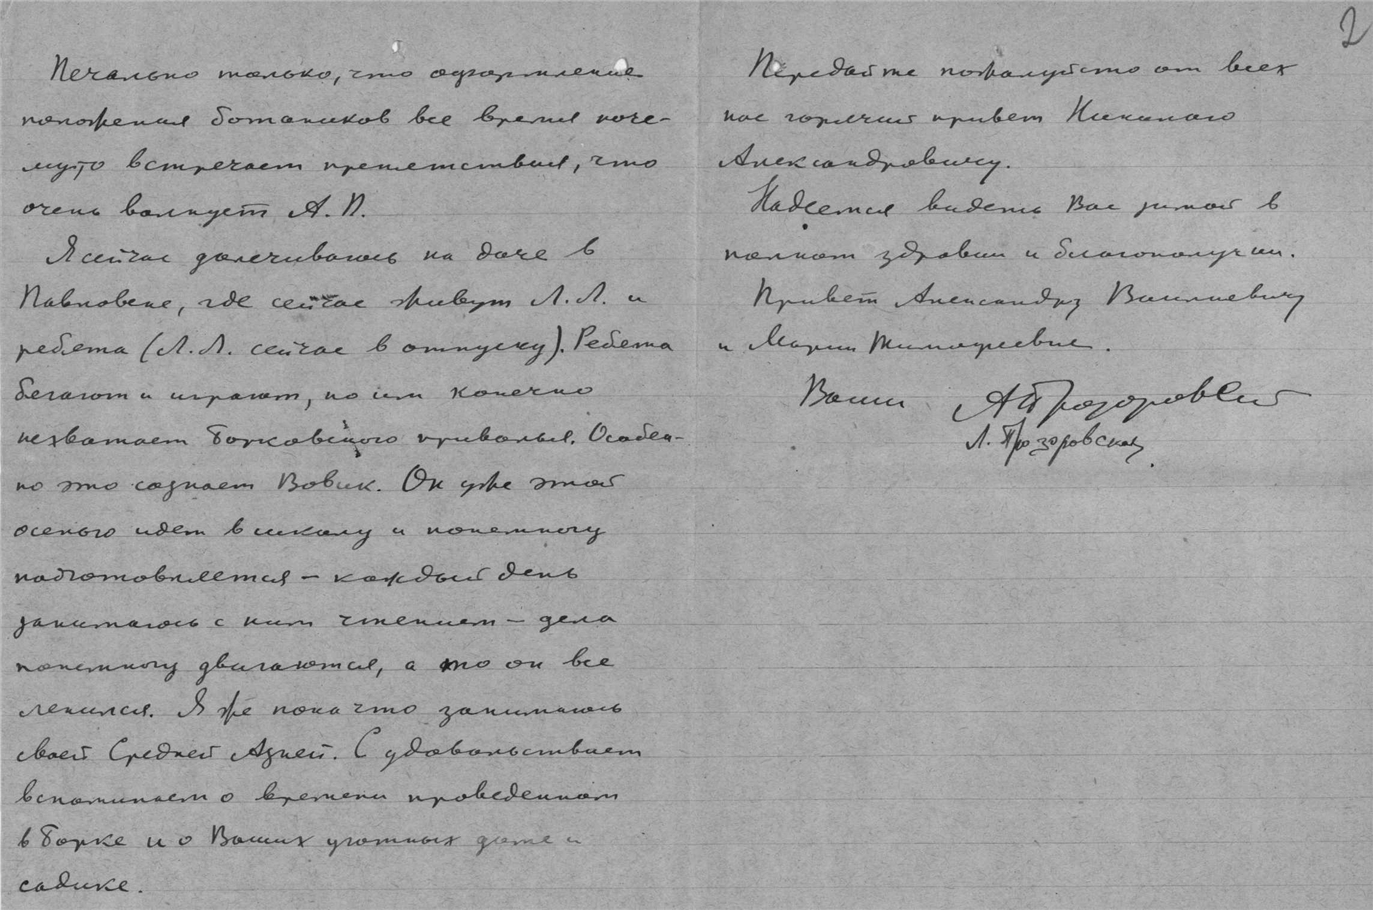 Печально только, что оформление
положения ботаников все время поче-
муто встречает препятствия, что
очень волнует А. П.
Я сейчас долечиваюсь на даче в
Павловске, где сейчас живут Л. Л. и
ребята (Л. Л. сейчас в отпуску). Ребята
бегают и играют, но им конечно
нехватает борковского приволья. Особен-
но это сознает Вовик. Он уже этой
осенью идет в школу и понемногу
подготовляется – каждый день
занимаюсь с ним чтением – дела
понемногу двигаются, а то он все
ленился. Я же пока что занимаюсь
своей Средней Азией. С удовольствием
вспоминаем о времени проведенном
в Борке и о Ваших уютных доме и
садике.
2
Передайте пожалуйста от всех
нас горячий привет Николаю
Александровичу.
Надеемся видеть Вас зимой в
полном здравии и благополучии.
Привет Александру Васильевичу
и Марии Тимофеевне.
Ваши АПрозоровский
Л. Прозоровская